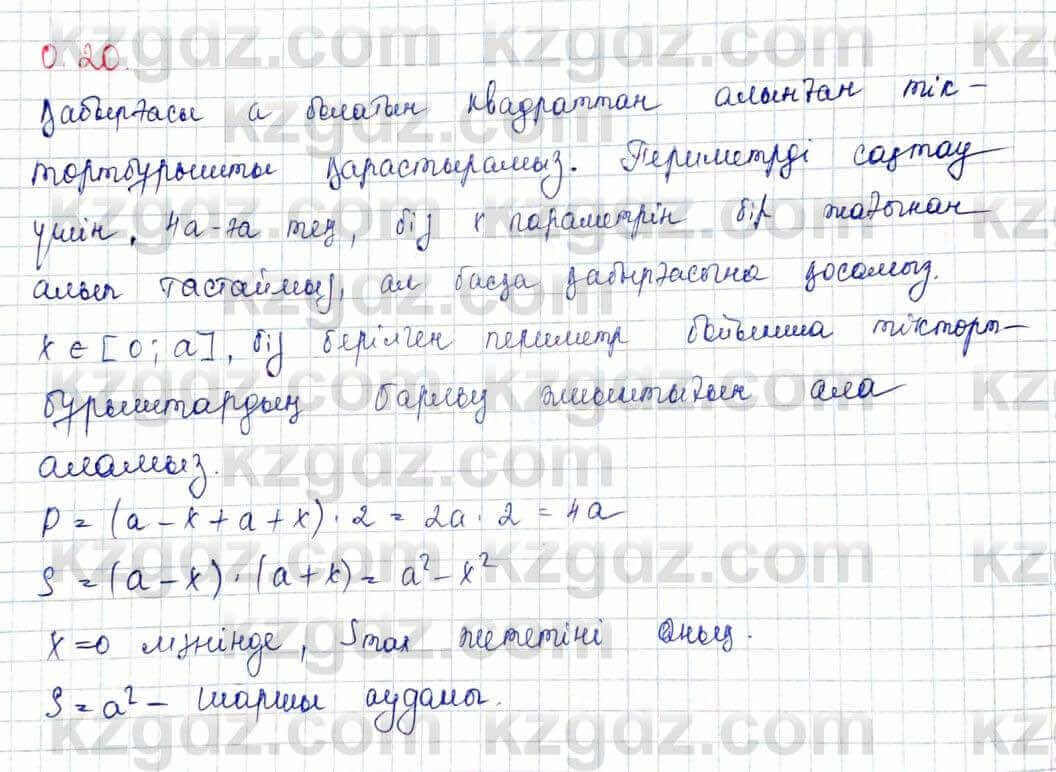 0.20.
Қабырғасы a болатын квадраттан алынған тік-
төртбұрышты қарастырамыз. Периметрді сақтау
үшін, 4a-ға тең, біз x параметрін бір жағынан
алып тастаймыз, ал басқа қабырғасына қосамыз.
x ∈ [0; a], біз берілген периметр бойынша тіктөрт-
бұрыштардың барлық жиынтығын ала
аламыз.
P = (a - x + a + x) · 2 = 2a · 2 = 4a
S = (a - x) · (a + x) = a² - x²
x = 0 мәнінде, Smax жететіні анық.
S = a² - шаршы ауданы.
kzgdz.com